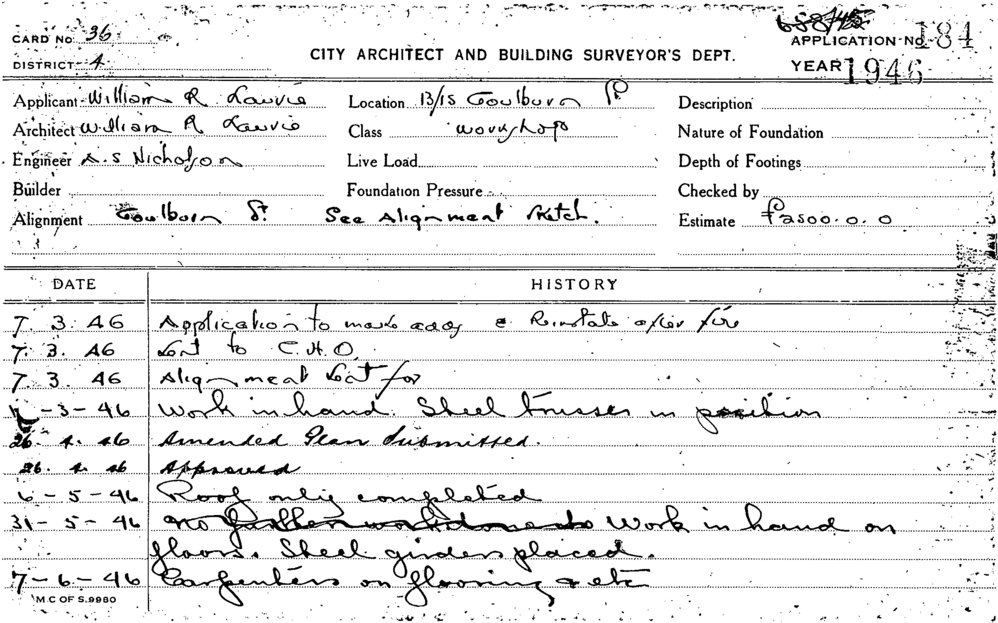 CARD No. 36
APPLICATION No. 184
DISTRICT 4
CITY ARCHITECT AND BUILDING SURVEYOR'S DEPT.
YEAR 1946
Applicant William R Laurie
Location 13/15 Goulburn St
Description
Architect William R Laurie
Class workshop
Nature of Foundation
Engineer A.S Nicholson
Live Load
Depth of Footings
Builder
Foundation Pressure
Checked by
Alignment Goulburn St. See Alignment Sketch.
Estimate £2500.0.0
DATE HISTORY
7. 3. 46 Application to make adds & Reinstate after fire
7. 3. 46 Sent to C.H.O.
7. 3. 46 Alignment Sent for
-3-46 Work in hand. Steel trusses in position
26. 4. 46 Amended Plan Submitted.
26. 4. 46 Approved
6-5-46 Roof only completed
31-5-46 no further work done to Work in hand on
floors. Steel girders placed.
7-6-46 Carpenters on flooring & etc
M.C OF S.9980